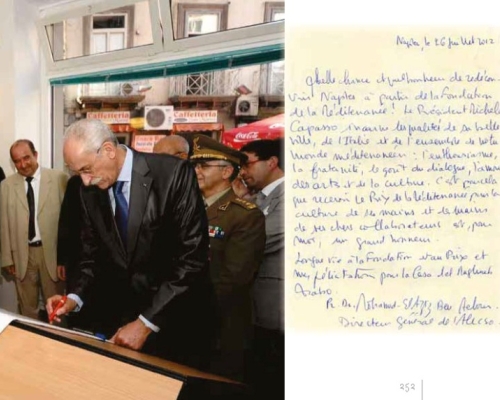 Caffetteria
Caffetteria
Coca-Cola
Naples, le 26 juillet 2012
Quelle chance et quel bonheur de redécou
vrir Naples à partir de la Fondation
de la Méditerranée! Le Président Michele
Capasso incarne les qualités de sa belle
ville, de l'Italie et de l'ensemble de
Monde méditerranéen: l'enthousiasme,
la fraternité, le goût du dialogue, l'amour
des arts et de la culture. C'est pourquoi
que recevoir le Prix de la Méditerranée pour la
culture de ses mains et des mains
de ses chers collaborateurs est, pour
moi, un grand honneur.
Longue vie à la Fondation et au Prix et
mes félicitations pour la Casa del Maghreb
Arabo.
Directeur Général de l'Alecso
252